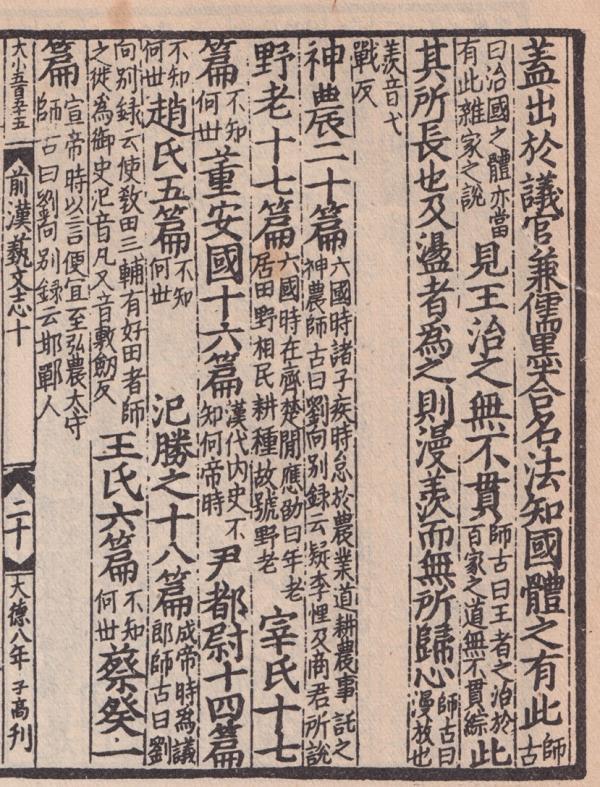 蓋出於議官兼儒墨合名法知國體之有此師古
曰治國之體亦當有此雜家之說見王治之無不貫師古曰王者之治於百家之道無不貫綜此
其所長也及盪者為之則漫羨而無所歸心師古曰漫放也
羨音弋戰反
神農二十篇六國時諸子疾時怠於農業道耕農事託之神農師古曰劉向別錄云疑李悝及商君所說
野老十七篇六國時在齊楚閒應劭曰年老居田野相民耕種故號野老宰氏十七
篇不知何世董安國十六篇漢代内史不知何帝時尹都尉十四篇
不知何世趙氏五篇不知何世氾勝之十八篇成帝時為議郎師古曰劉
向別錄云使教田三輔有好田者師之徙為御史氾音凡又音敷劒反王氏六篇不知何世蔡癸一
篇宣帝時以言便宜至弘農太守師古曰劉向別錄云邯鄲人
大小五百五五
前漢藝文志十
二十
大德八年 子高刊